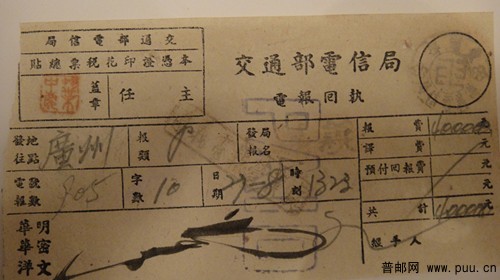 交通部電信局
本憑證印花稅票總貼
主任
蓋章
交通部電信局
電報回執
發往地點 廣州 報類 P 發報局名
報費 40000元
譯費 元
預付回報費 元
電報號數 905 字數 10 日期 27-8 時刻 1323
共計 40000元
華明
華密
洋文
經手人
普邮网 www.puu.cn